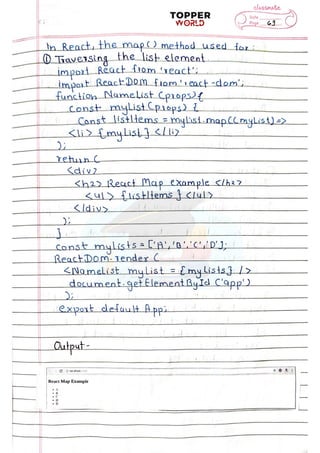 classmate
TOPPER
WORLD
Date
Page 63
In React, the map() method used for:
① Traversing the list element
import React from 'react';
import ReactDOM from 'react-dom';
function NameList (props){
const myList (props) {
Const listItems = myList.map((myList)=>
<li> {myList} </li>
);
return (
<div>
<h2> React Map Example </h2>
<ul> {listItems} </ul>
</div>
);
}
const myLists = ['A', 'B', 'C', 'D'];
ReactDom.render (
<NameList myList = {myLists} />
document.getElementById ('app')
);
export default App;
Output-
React Map Example